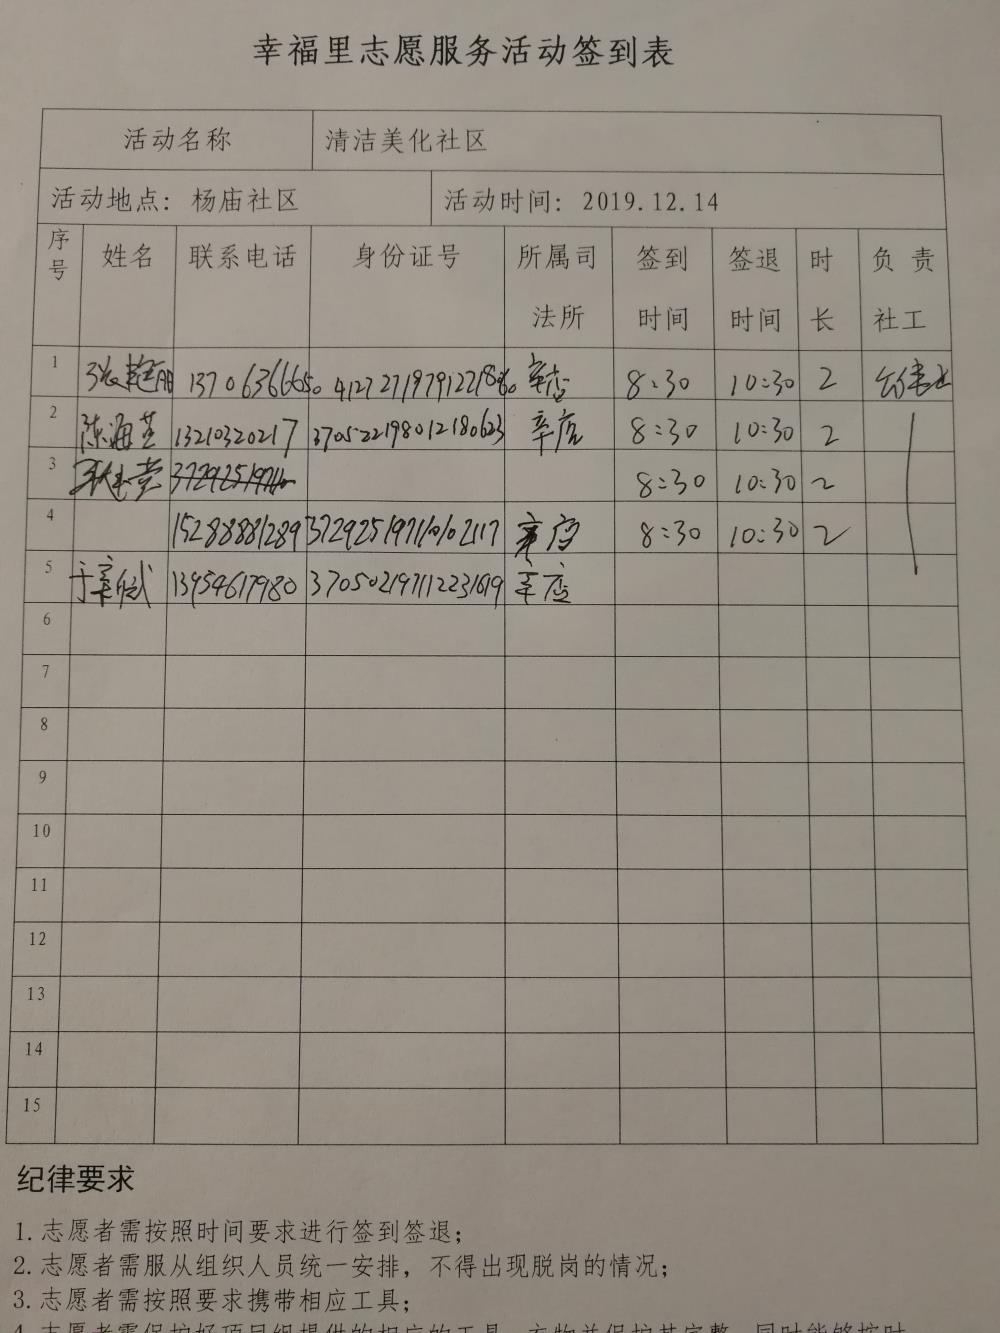 幸福里志愿服务活动签到表
活动名称 清洁美化社区
活动地点: 杨庙社区 活动时间: 2019.12.14
序号 姓名 联系电话 身份证号 所属司法所 签到时间 签退时间 时长 负责社工
1 张艳丽 辛店 8:30 10:30 2
2 陈海莲 13210320217 370522198012180623 辛店 8:30 10:30 2
3 8:30 10:30 2
4 15288881289 辛店 8:30 10:30 2
5 13954617980 370502197112231619 辛店
6
7
8
9
10
11
12
13
14
15
纪律要求
1.志愿者需按照时间要求进行签到签退;
2.志愿者需服从组织人员统一安排，不得出现脱岗的情况;
3.志愿者需按照要求携带相应工具;